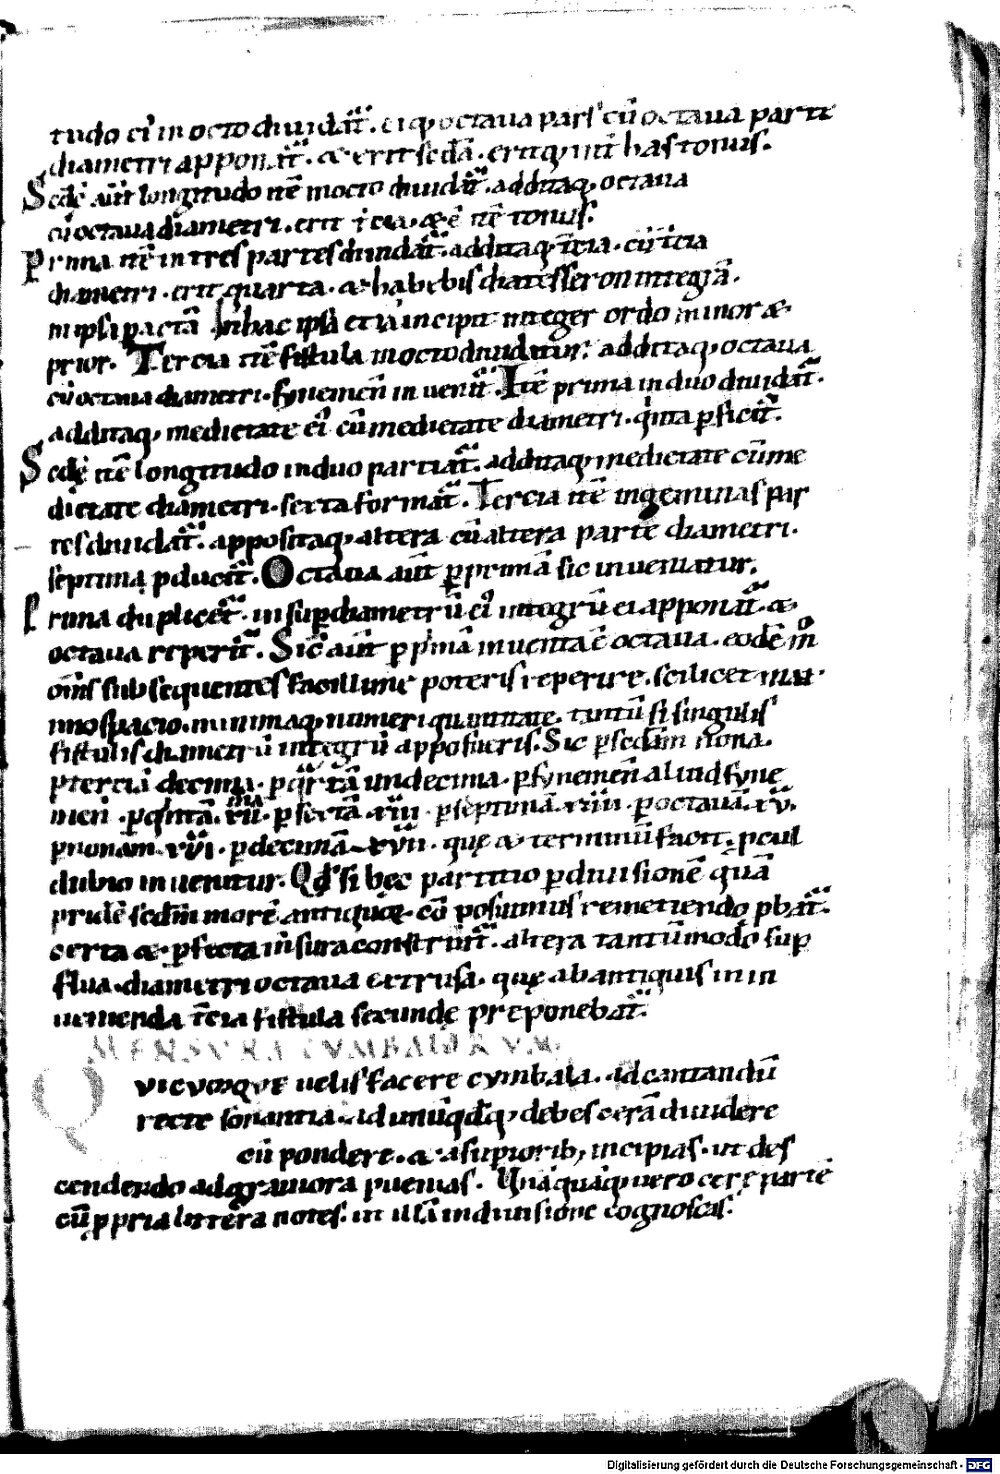 tudo eī in octo diuidat̄. eiq; octaua pars cū octaua parte
diametri apponat̄. & erit scd̄a. eritq; int̄ has tonus.
Scdę aut̄ longitudo itē in octo diuidat̄. additaq; octaua
cū octaua diametri. erit t̄cia. & ē itē tonus.
Prima itē in tres partes diuidat̄. additaq; t̄cia. cū t̄cia
diametri. erit quarta. & habebis diatesseron integrā.
In hac ipsa etiā incipit integer ordo minor &
prior. Tercia itē fistula in octo diuiditur. additaq; octaua
cū octaua diametri. synemen̄ inuenit̄. Itē prima in duo diuidat̄.
additaq; medietate ei' cū medietate diametri. q̇nta pficit̄.
Scdę itē longitudo in duo partiat̄. additaq; medietate cū me
dietate diametri. sexta format̄. Tercia itē in geminas par
tes diuidat̄. appositaq; altera cū altera parte diametri.
septima pducit̄. Octaua aut̄ p primā sic inueniatur.
Prima duplicet̄. insup diametrū ei' integrū ei apponat̄. &
octaua reperit̄. Sic' aut̄ p p'mā inuenta ē octaua. eodē m°
om̄s subsequentes facillime poteris reperire. scilicet
tantū si singulis
fistulis diametrū integrū apposueris. Sic p scdam nona.
p terciā decima. p qr̄tā undecima. p synemen̄ aliud syne
men̄. p qntā. xii. p sextā. xiii. p septimā. xiiii. p octauā. xv.
p nonam. xvi. p decimā. xvii. quę & terminū facit. pcul
dubio inuenitur. Qd' si hęc partitio p diuisionē quā
certa & pfecta m̄sura construit̄. altera tantūmodo sup
flua. diametri octaua extrusa. quę ab antiquis in in
uenienda t̄cia fistula secundę preponebat̄.
MENSURA CYMBALORUM.
QVICVMQVE uelis facere cymbala. ad cantandū
recte sonantia. ad unūqdq; debes cerā diuidere
cū pondere. & a supiorib; incipias. ut des
cendendo ad grauiora puenias. Unāquāq; uero cerę partē
cū ppria littera notes. ut illā in diuisione cognoscas.
Digitalisierung gefördert durch die Deutsche Forschungsgemeinschaft - DFG